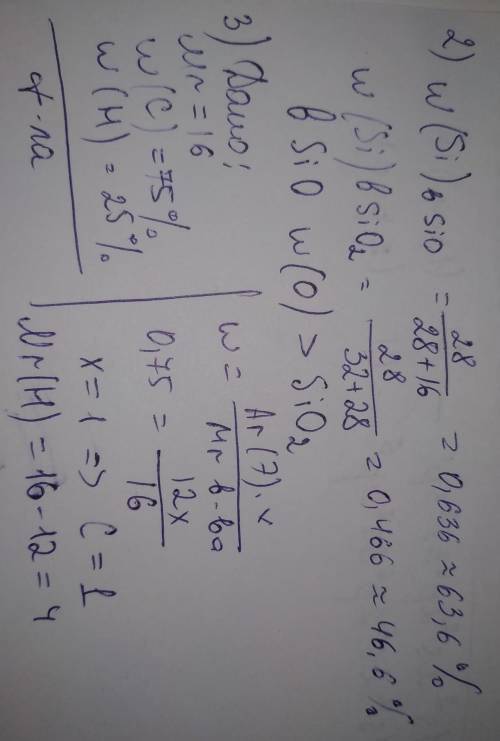 2) W(Si) в SiO = 28/28+16 = 0,636 ≈ 63,6%
W(Si) в SiO₂ = 28/32+28 = 0,466 ≈ 46,6%
в SiO W(O) > SiO₂
3) Дано:
Mr = 16
W(C) = 75%
W(H) = 25%
ф-ла
W = Ar(?)·x/Mr в-ва
0,75 = 12x/16
x = 1 => C = 1
Mr(H) = 16-12 = 4